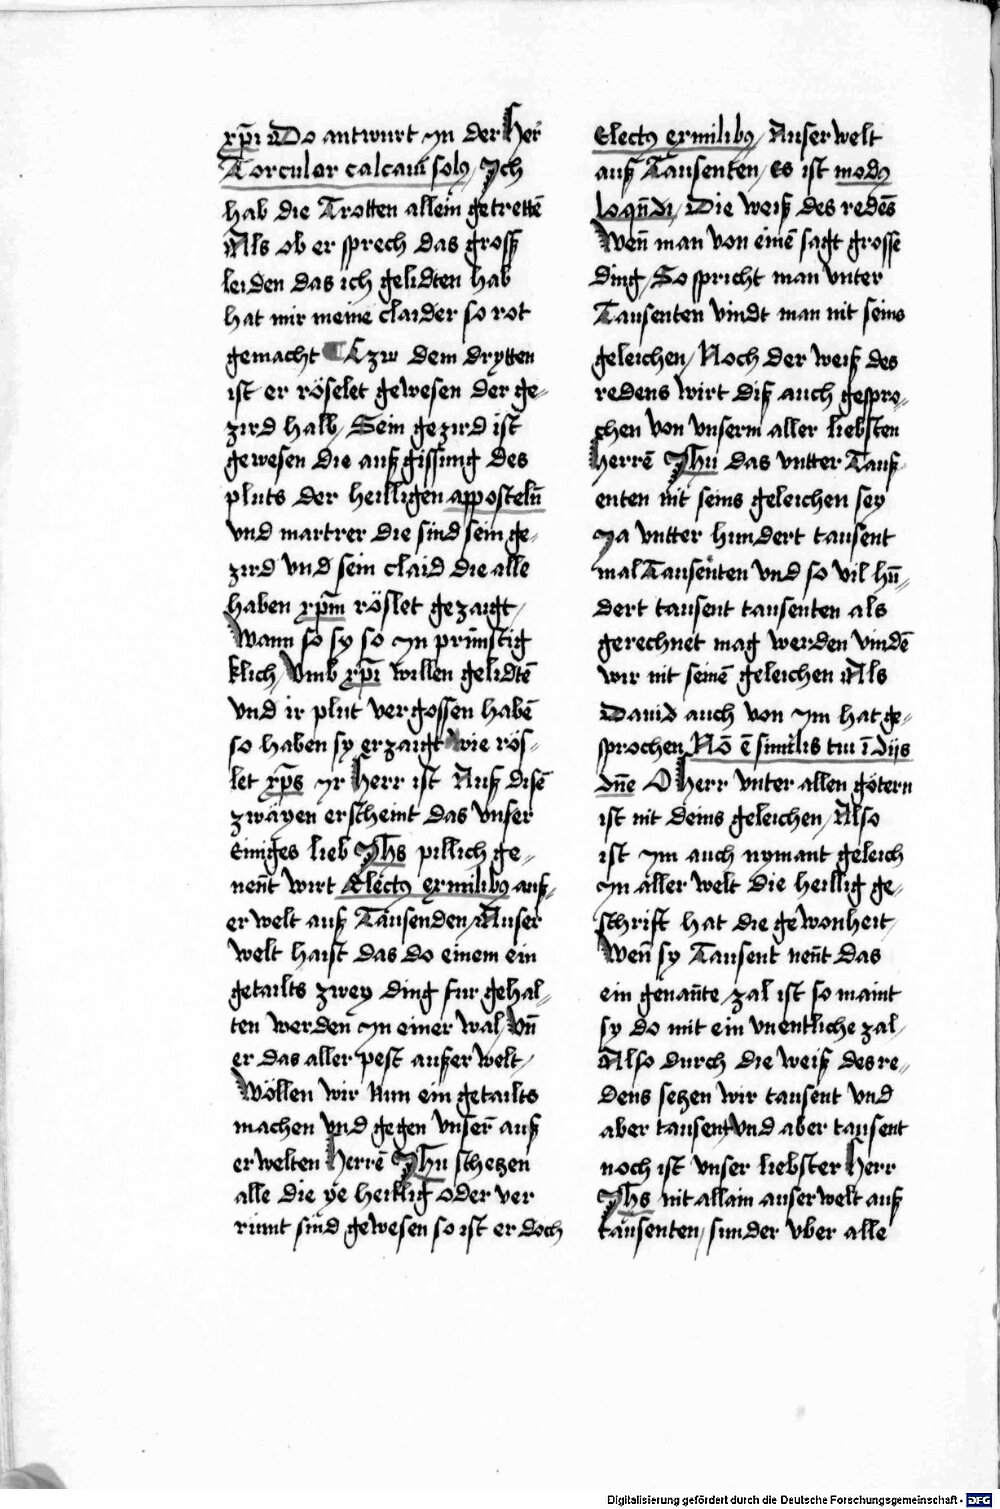 xp̄i Do antwurt yn der Her̄
Torculor calcaui solꝰ, Ich
hab die Trotten allein getrettē
Als ob er sprech das gross
leiden das ich gelidten hab
hat mir meine claider so rot
gemacht ¶ Czw dem drytten
ist er röselet gewesen der ge⸗
zird halb, Sein gezird ist
gewesen die auß gissung des
pluts der heilligen appostelñ
vnd martrer die sind sein ge⸗
zird vnd sein claid die alle
haben xp̄m röslet gezaigt,
Wann so sy so yn prünstig
klich, vmb xp̄i willen gelidtē
vnd ir plut vergossen habē
so haben sy erzaigt wie rös⸗
let xp̄s yr Herr ist Auß disē
zwäyen erscheint das vnser
Einiges lieb Jhs pillich ge⸗
nen̄t wirt Electꝰ ex milibꝰ auß⸗
er welt auß Tausenden, Auser
welt haist das do einem ein
getailts zwey ding fur gehal⸗
ten werden yn einer wal, vn̄
er das aller pest außer welt,
Wöllen wir Nun ein getailts
machen vnd gegen vnser̄ auß
erwelten Herrē Jhu schetzen
alle die ye heillig oder ver
rümt sind gewesen so ist er doch
Electꝰ ex milibꝰ, Auser welt
auß Tausenten, Es ist modꝰ
loqn̄di, Die weiß des redēs
Wen̄ man von einē sagt grosse
ding, So spricht man vnter
Tausenten vindt man nit seins
geleichen, Noch der weiß des
redens wirt diß auch gespro⸗
chen von vnserm aller liebsten
Herrē Jhu das vntter Tauß⸗
enten nit seins geleichen sey
Ja vntter hundert tausent
mal Tausenten vnd so vil hū⸗
dert tausent tausenten als
gerechnet mag werden vindē
wir nit seinē geleichen Als
Dauid auch von ym hat ge⸗
sprochen Nō ē similis tui ī dijs
dn̄e O Herr vnter allen götern
ist nit deins geleichen, Also
ist ym auch nymant geleich
yn aller welt die heillig ge⸗
schrift hat die gewonheit,
Wen̄ sy Tausent nen̄t das
ein genan̄te zal ist so maint
sy do mit ein vnentliche zal,
Also durch die weiß des re⸗
dens setzen wir tausent vnd
aber tausent vnd aber tausent
noch ist vnser liebster Herr
Jhs nit allain auser welt auß
tausenten, sunder vber alle
Digitalisierung gefördert durch die Deutsche Forschungsgemeinschaft - DFG